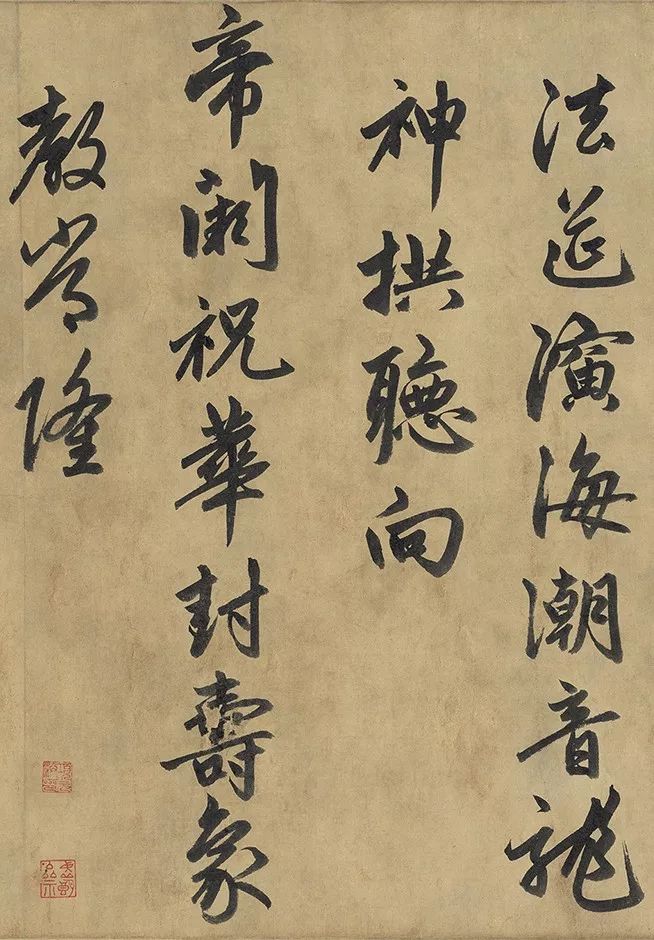 法莚演海潮音龍
神拱聽向
帝闕祝華封壽象
教常隆